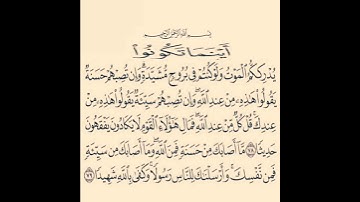 بِسْمِ اللَّهِ الرَّحْمَٰنِ الرَّحِيمِ
أَيْنَمَا تَكُونُوا
يُدْرِككُّمُ الْمَوْتُ وَلَوْ كُنتُمْ فِي بُرُوجٍ مُّشَيَّدَةٍ وَإِن تُصِبْهُمْ حَسَنَةٌ
يَقُولُوا هَٰذِهِ مِنْ عِندِ اللَّهِ وَإِن تُصِبْهُمْ سَيِّئَةٌ يَقُولُوا هَٰذِهِ مِنْ
عِندِكَ قُلْ كُلٌّ مِّنْ عِندِ اللَّهِ فَمَالِ هَٰؤُلَاءِ الْقَوْمِ لَا يَكَادُونَ يَفْقَهُونَ
حَدِيثًا ٧٨ مَّا أَصَابَكَ مِنْ حَسَنَةٍ فَمِنَ اللَّهِ وَمَا أَصَابَكَ مِن سَيِّئَةٍ
فَمِن نَّفْسِكَ وَأَرْسَلْنَاكَ لِلنَّاسِ رَسُولًا وَكَفَىٰ بِاللَّهِ شَهِيدًا ٧٩